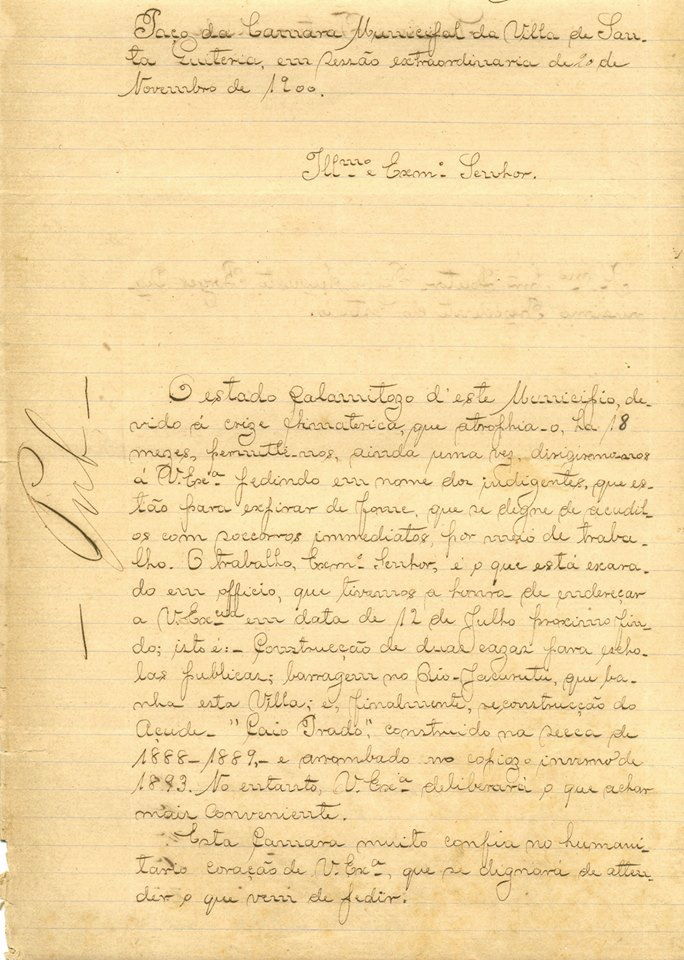 Paço da Camara Municipal da Villa de San-
ta Quiteria, em sessão extraordinaria de 20 de
Novembro de 1900.
Illmo e Exmo Senhor.
O estado calamitozo d'este Municipio, de-
vido á crize climaterica, que atrophia-o, ha 18
mezes, permitte-nos, ainda uma vez, dirigirmo-nos
á V. Exa pedindo em nome dos indigentes, que es-
tão para expirar de fome, que se digne de acudil-
os com soccorros immediatos, por meio de traba-
lho. O trabalho, Exmo Senhor, é o que está exara-
do em officio, que tivemos a honra de endereçar
a V. Excia em data de 12 de Julho proximo fin-
do; isto é: - Construcção de duas cazas para escho-
las publicas; barragem no Rio-Jacurutú, que ba-
nha esta Villa; e, finalmente, reconstrucção do
Açude - "Caio Prado", construido na secca de
1888-1889, - e arrombado no copiozo inverno de
1893. No entanto, V. Exa deliberará o que achar
mais conveniente.
Esta Camara muito confia no humani-
tario coração de V. Exa, que se dignará de atten-
der o que vem de pedir.